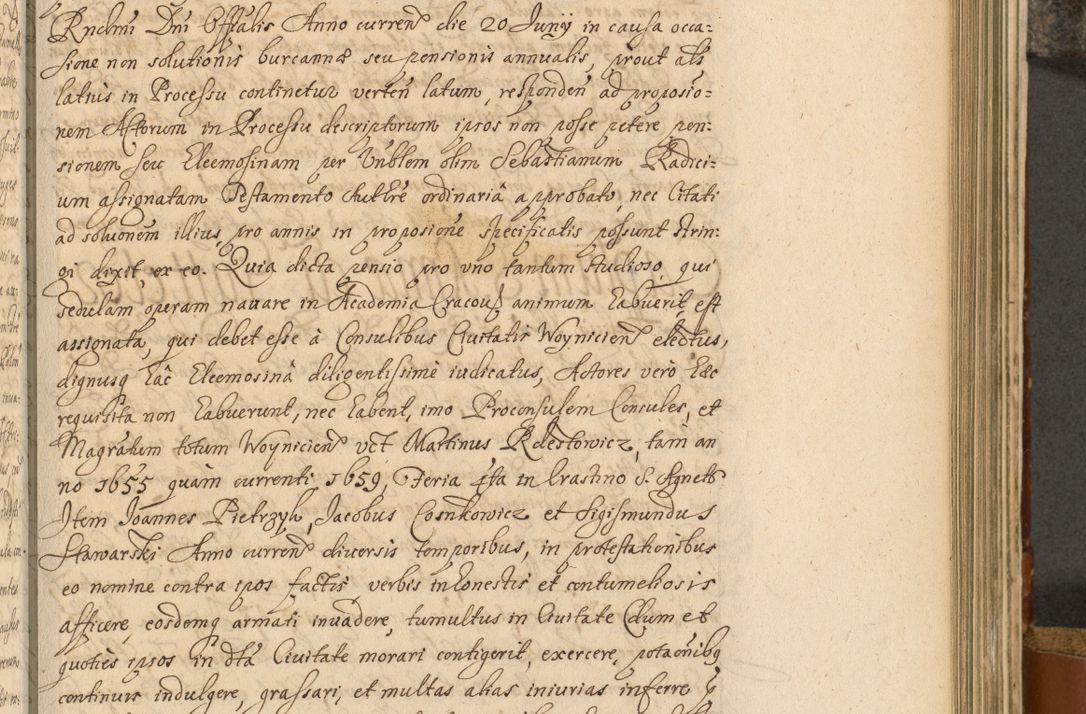 Rndmi Dni Offalis Anno curren̄ die 20 Junÿ in causa occa:
sione non solutionis burcannæ seu pensionis annualis, prout als
latius in Processu continetur verten̄ latum, responden̄ ad proposio:
nem Actorum in Processu descriptorum ipsos non posse petere pen:
sionem seu Eleemosinam per Vnblem olim Sebastianum Radici:
um assignatam Testamento authre ordinariâ approbato, nec Citati
ad soluonem illius pro annis in proposione specificatis possunt strin:
gi dixit, ex eo. Quia dicta pensio pro vno tantum studioso, qui
sedulam operam nauare in Academia Cracou animum habuerit, est
assignata, qui debet esse à Consulibus Ciuitatis Woynicien̄ electus,
dignusq hac Eleemosinâ diligentissimè iudicatus, Actores verò hæc
requisita non habuerunt, nec habent, imo Proconsulem Consules, et
Magratum totum Woynicien̄ vct Martinus Rdestowicz, tam an
no 1655 quàm currenti 1659, Feria 4ta in Crastino S. Agnetis
Item Joannes Pietrzyk, Jacobus Cosnkowicz et Sigismundus
Stawarski Anno curren̄ diuersis temporibus, in protestationibus
eo nomine contra ipsos factis, verbis inhonestis et contumeliosis
afficere, eosdemq armati inuadere, tumultus in Ciuitate Clum et
quoties ipsos in dta Ciuitate morari contigerit, exercere, potaonibq
continuis indulgere, grassari, et multas alias iniurias inferre